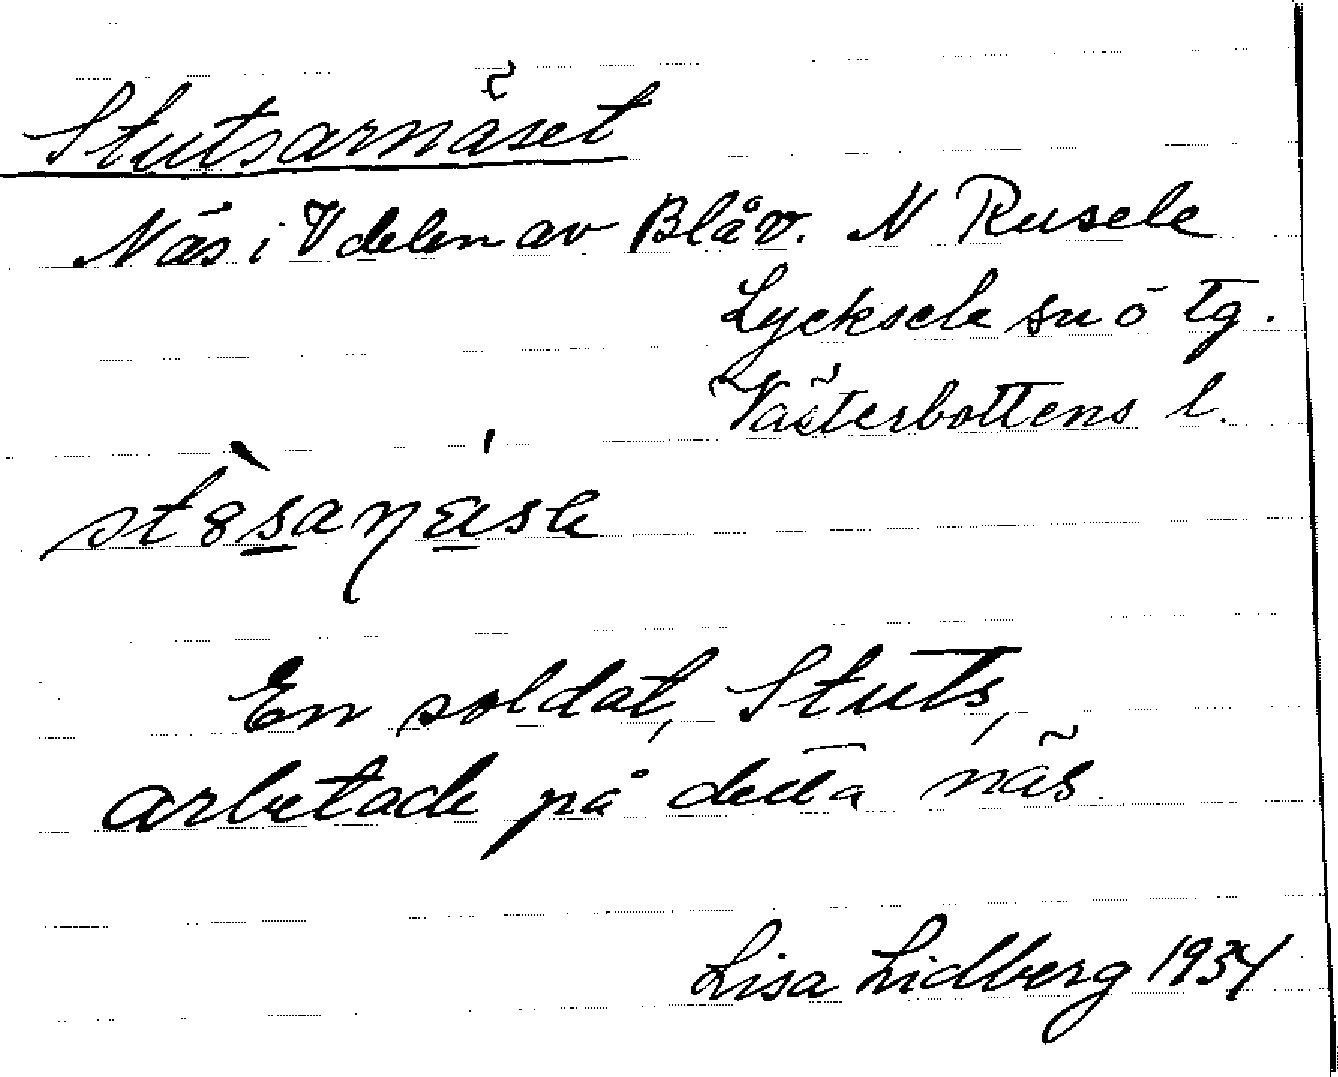 Stutsarnäset
Näs i V delen av Blåv. N Rusele
Lycksele sn o tg.
Västerbottens l.
En soldat, Stuts,
arbetade på detta näs.
Lisa Lidberg 1934